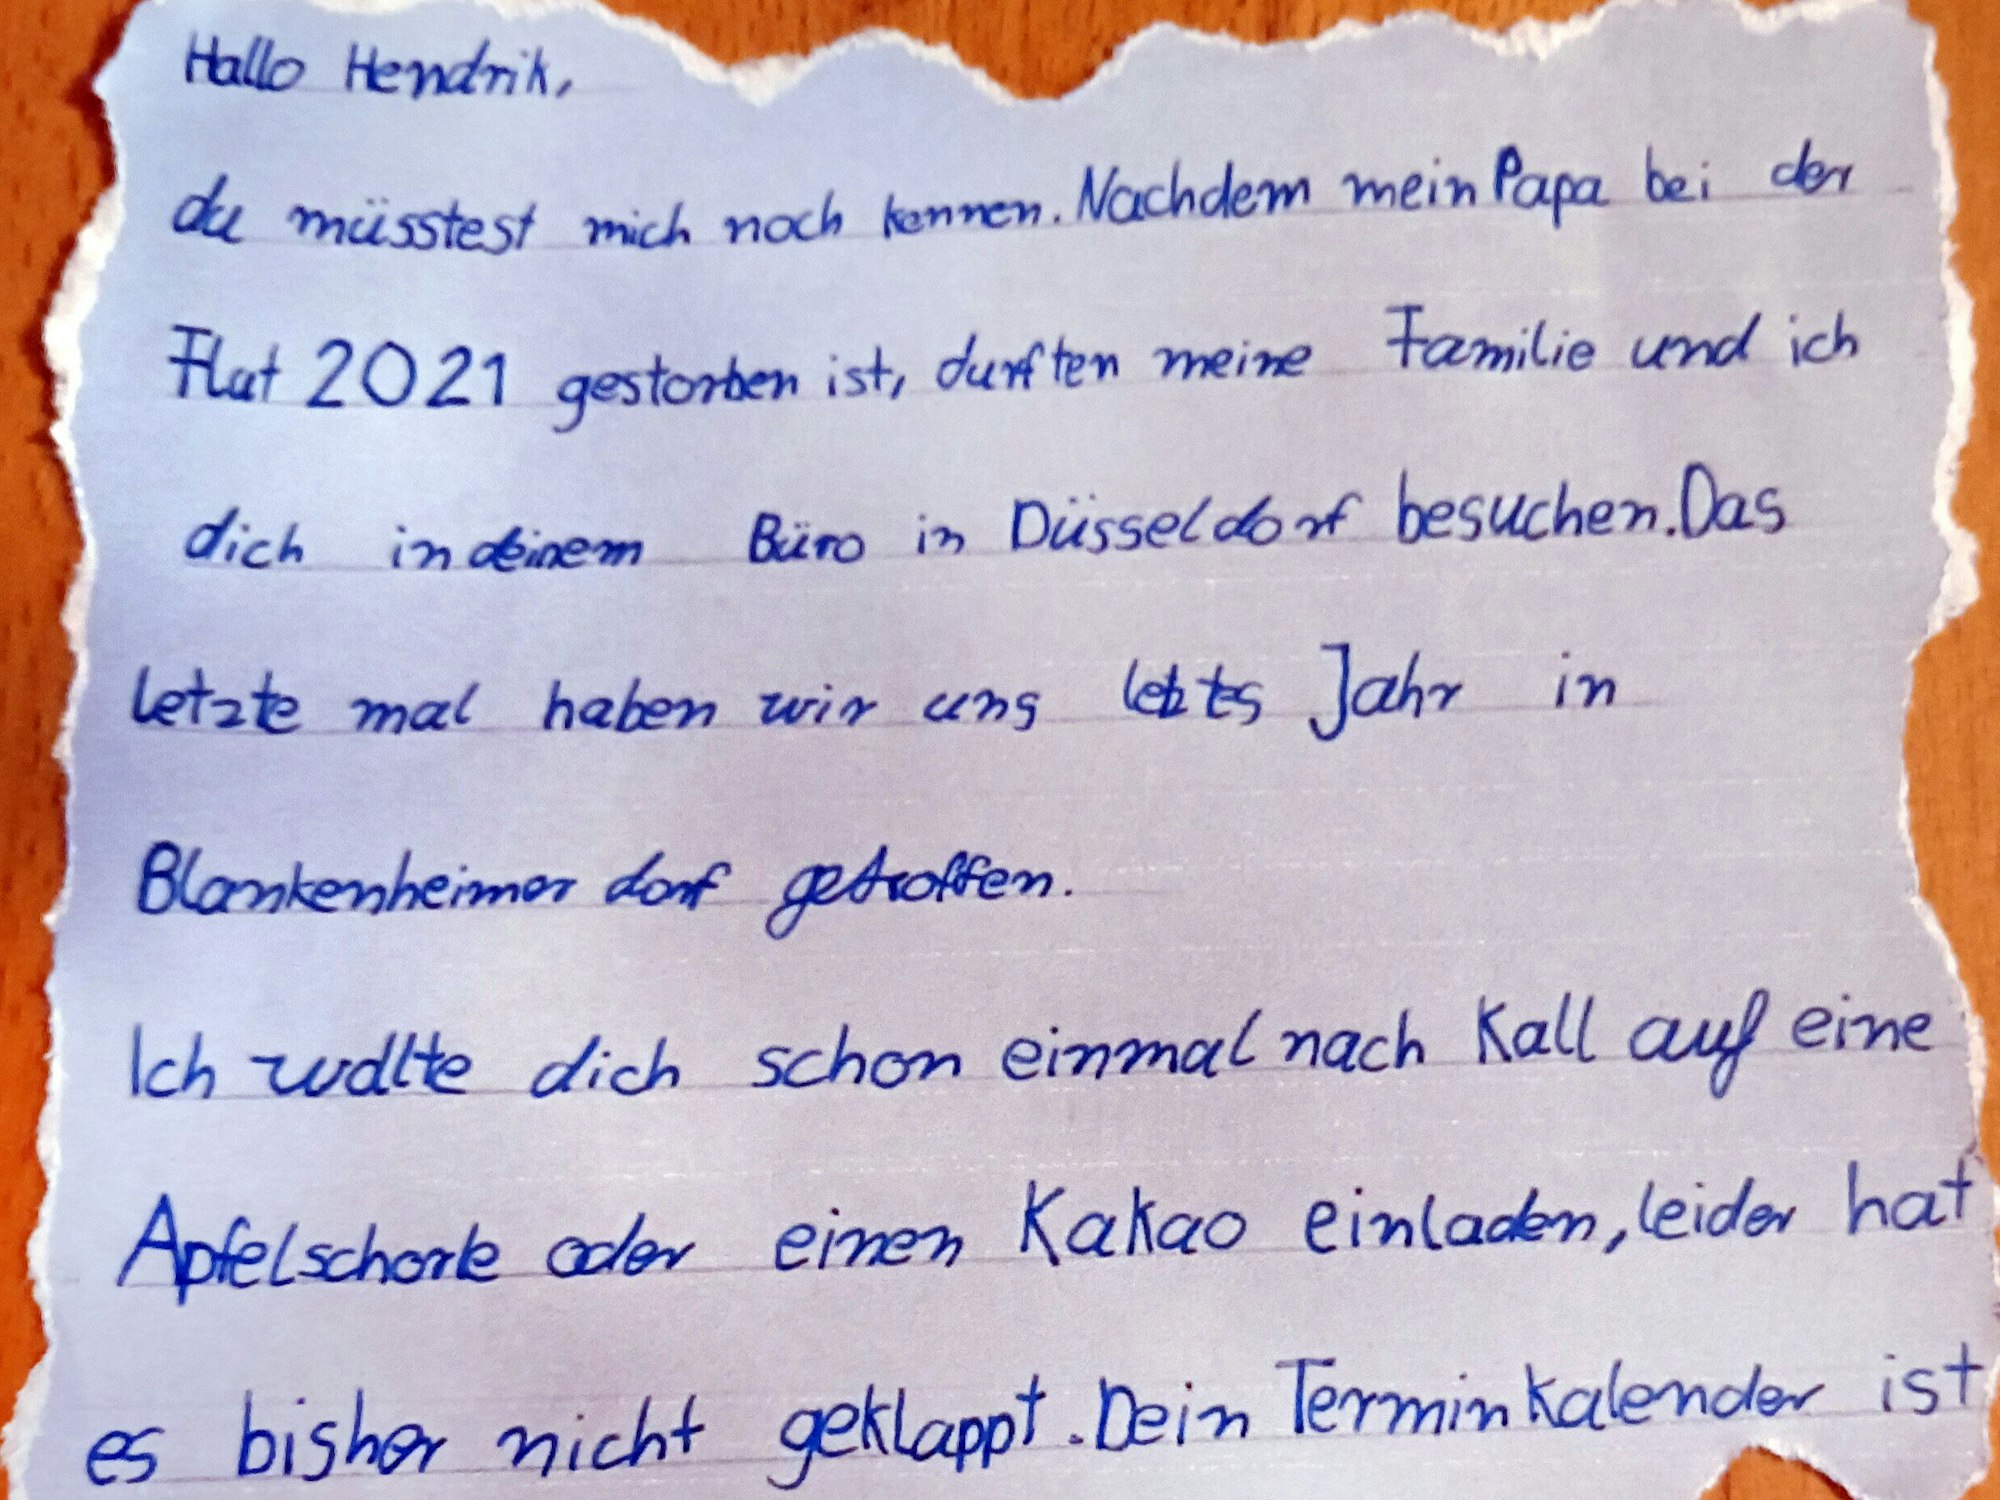 Hallo Hendrik,
du müsstest mich noch kennen. Nachdem mein Papa bei der
Flut 2021 gestorben ist, durften meine Familie und ich
dich in deinem Büro in Düsseldorf besuchen. Das
letzte mal haben wir uns letztes Jahr in
Blankenheimer dorf getroffen.
Ich wollte dich schon einmal nach Kall auf eine
Apfelschorle oder einen Kakao einladen, leider hat
es bisher nicht geklappt. Dein Terminkalender ist